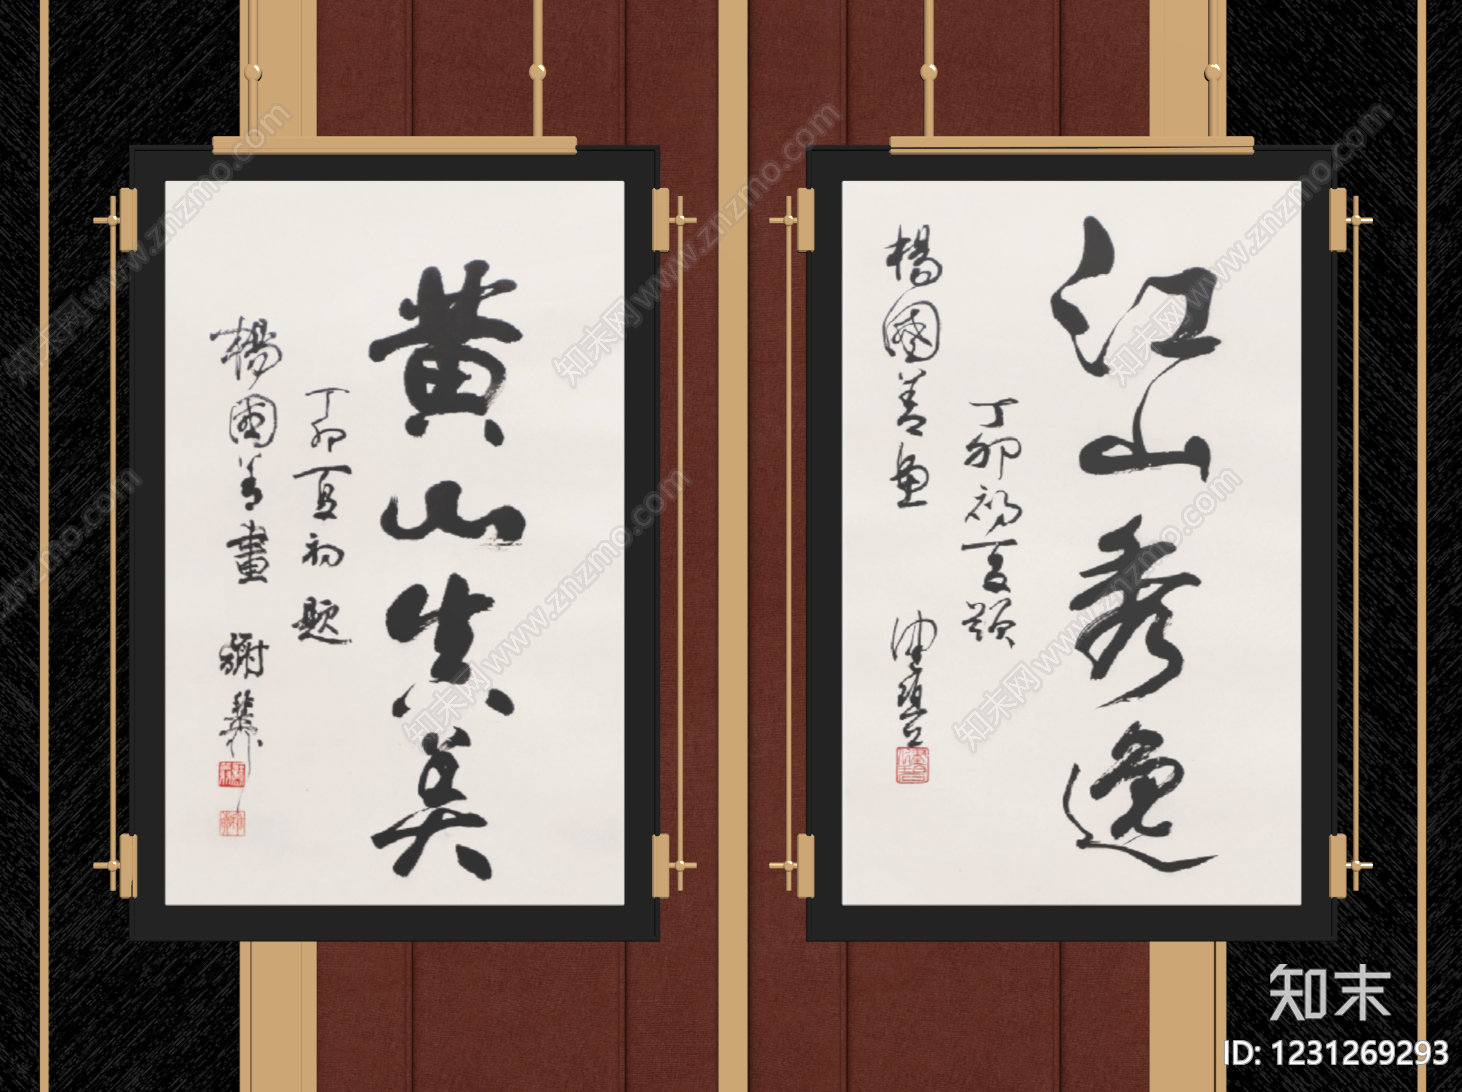 江山秀逸
丁卯初夏題
楊國善畫
黄山真美
丁卯夏初題
楊國善畫 謝
知末网www.znzmo.com
知末
ID: 1231269293